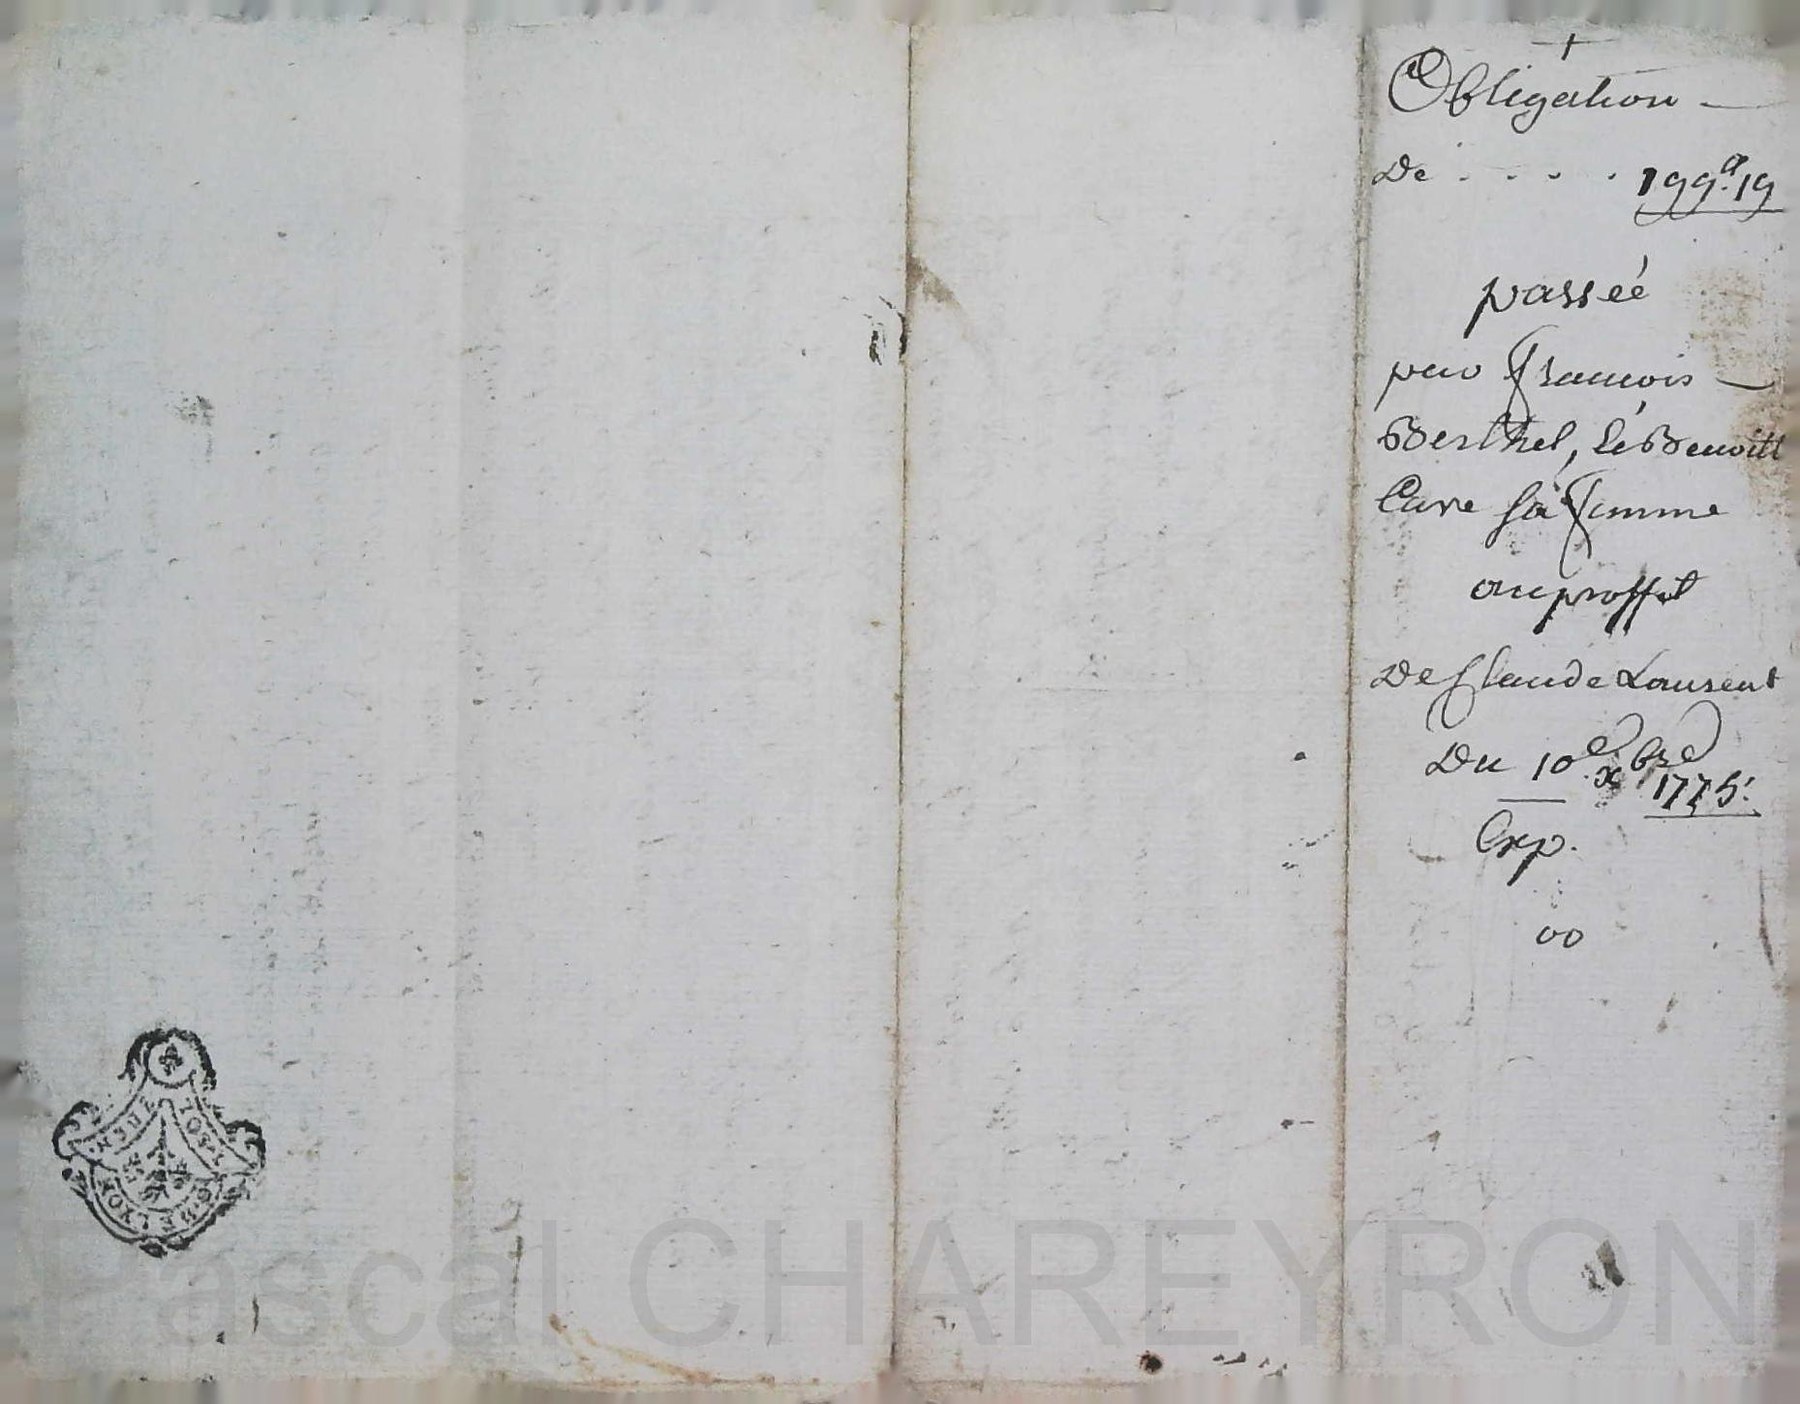 +
Obligation —
De . . . . 199#19
passéé
par francois —
Berthel, & Benoitt
Cave sa femme
au proffit
De Claude Laurent
Du 10e xbre
1775.
Exp.
00
Pascal CHAREYRON